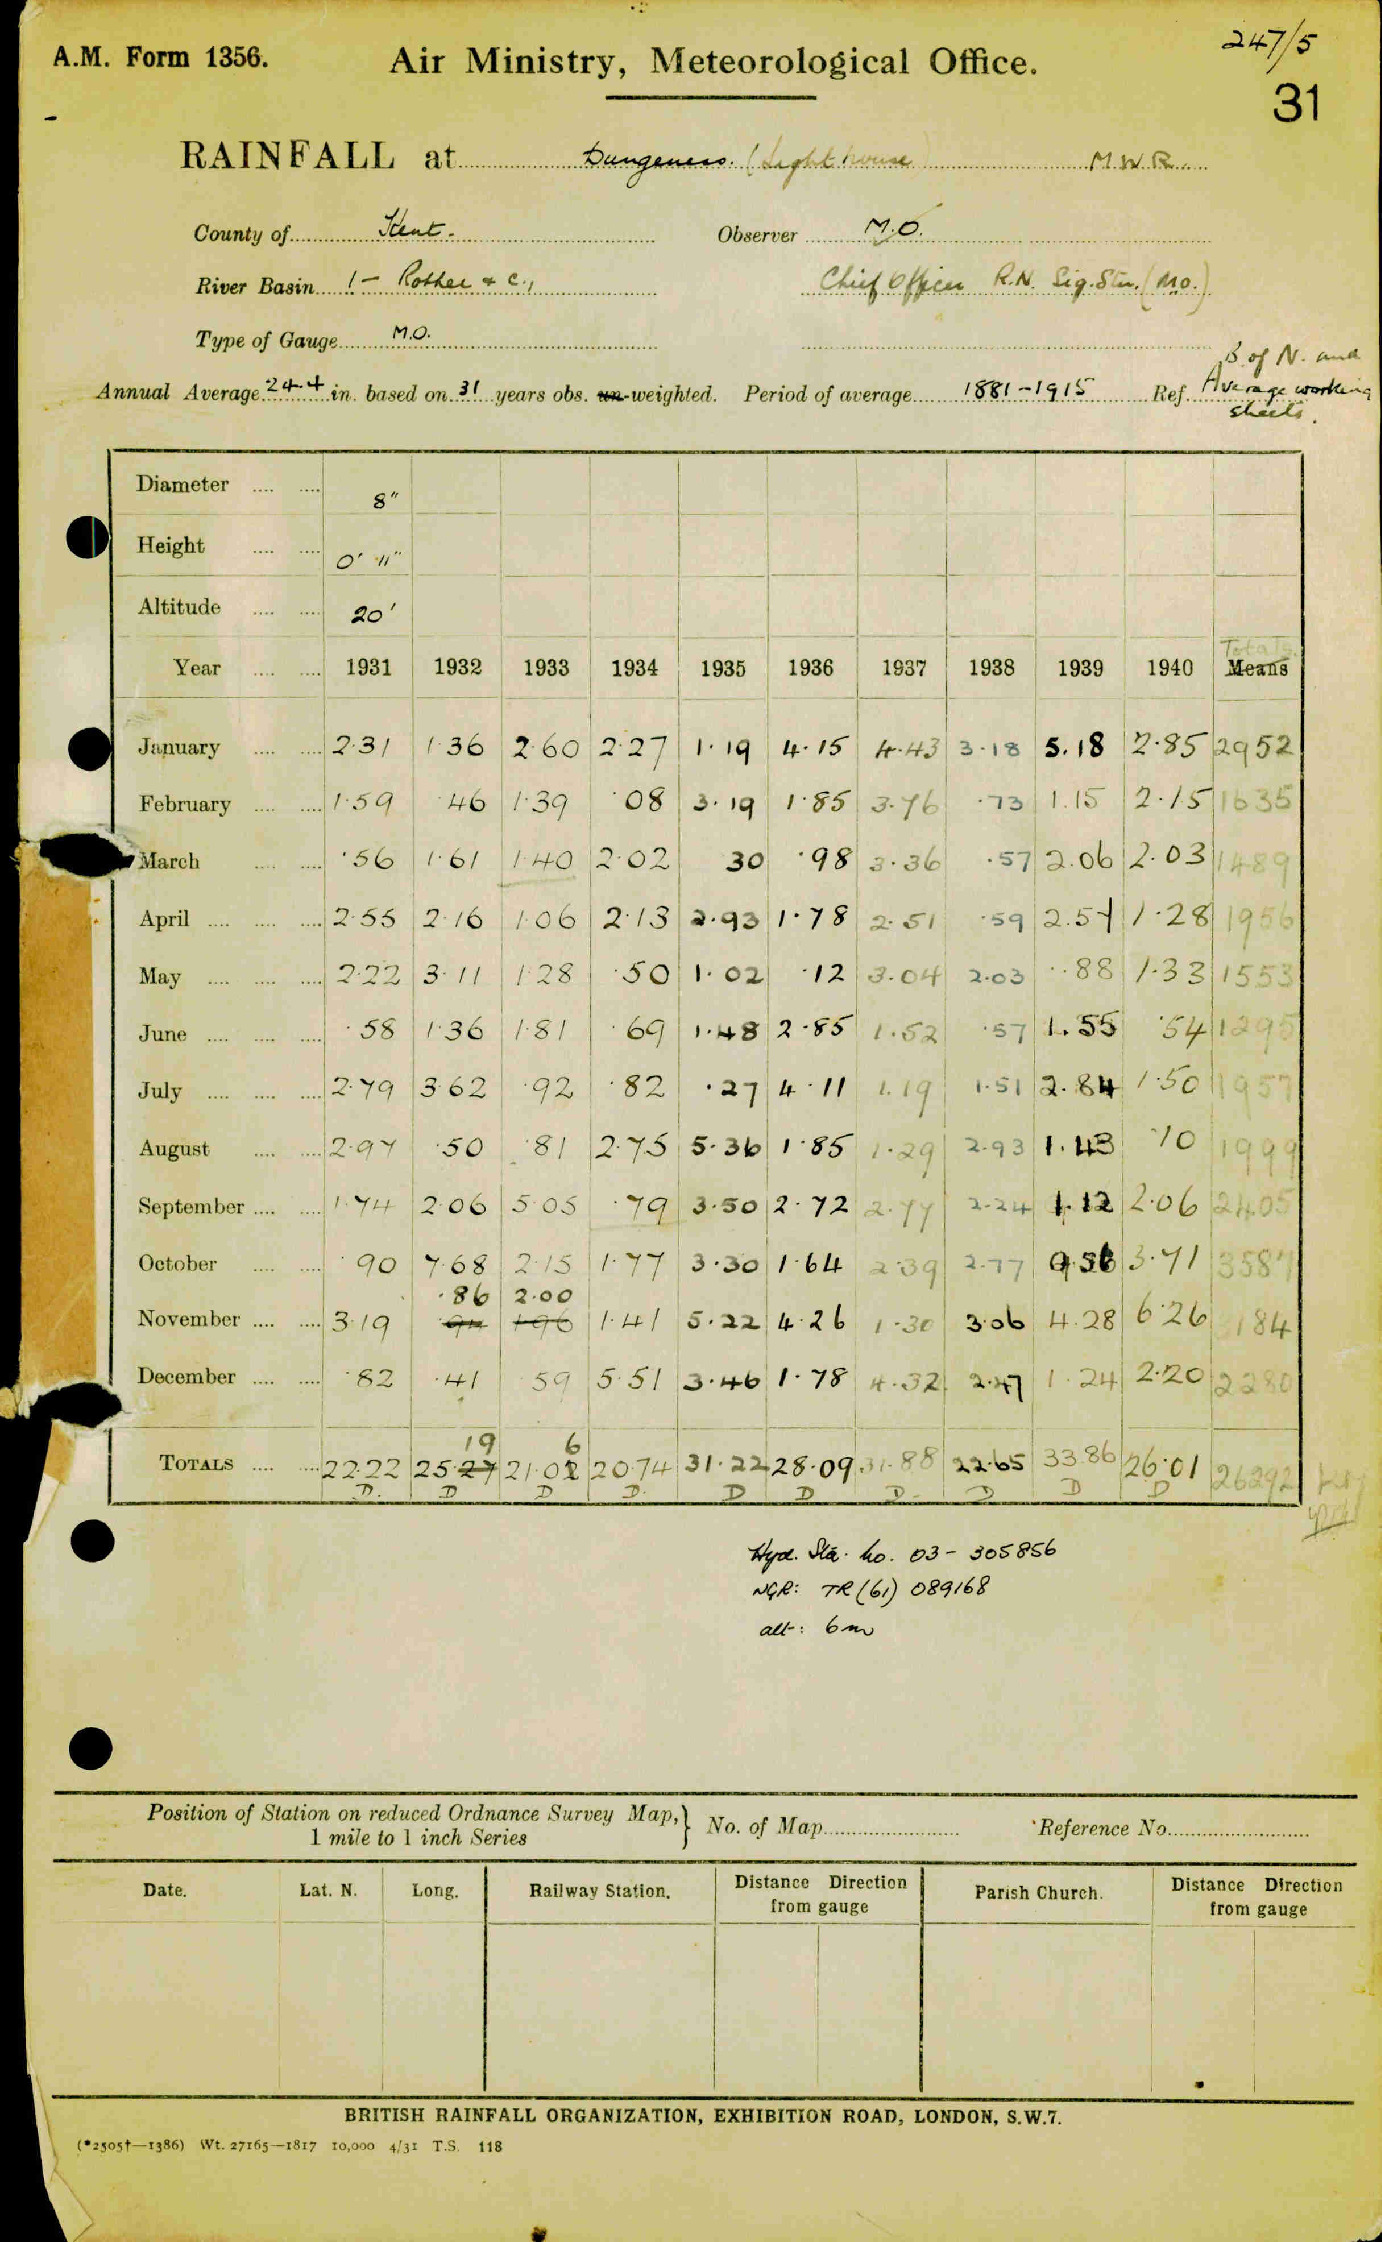 247/5
A.M. Form 1356. Air Ministry, Meteorological Office.
31
RAINFALL at Dungeness. (Lighthouse) M.W.R.
County of Kent. Observer M.O.
River Basin 1 – Rother & C., Chief Officer R.N. Sig. Stn. (M.O.)
Type of Gauge M.O.
Annual Average 24.4 in. based on 31 years obs. un-weighted. Period of average 1881-1915 Ref. B. of N. and Average working sheets.
Diameter 8"
Height 0' 11"
Altitude 20'
Year 1931 1932 1933 1934 1935 1936 1937 1938 1939 1940 Means Totals
January 2.31 1.36 2.60 2.27 1.19 4.15 4.43 3.18 5.18 2.85 2952
February 1.59 .46 1.39 .08 3.19 1.85 3.76 .73 1.15 2.15 1635
March .56 1.61 1.40 2.02 30 .98 3.36 .57 2.06 2.03 1489
April 2.55 2.16 1.06 2.13 2.93 1.78 2.51 .59 2.57 1.28 1956
May 2.22 3.11 1.28 .50 1.02 .12 3.04 2.03 .88 1.33 1553
June .58 1.36 1.81 .69 1.48 2.85 1.52 .57 1.55 .54 1295
July 2.79 3.62 .92 .82 .27 4.11 1.19 1.51 2.84 1.50 1957
August 2.97 .50 .81 2.75 5.36 1.85 1.29 2.93 1.43 .10 1999
September 1.74 2.06 5.05 .79 3.50 2.72 2.77 2.24 1.12 2.06 2405
October .90 7.68 2.15 1.77 3.30 1.64 2.39 2.77 9.56 3.71 3587
.86 2.00
November 3.19 .94 1.96 1.41 5.22 4.26 1.30 3.06 4.28 6.26 3184
December .82 .41 .59 5.51 3.46 1.78 4.32 2.47 1.24 2.20 2280
19 6
TOTALS 22.22 25.27 21.02 20.74 31.22 28.09 31.88 22.65 33.86 26.01 26292
D. D D D. D D D. D D D
Hyd. Sta. No. 03-305856
NGR: TR (61) 089168
alt: 6m
Position of Station on reduced Ordnance Survey Map, 1 mile to 1 inch Series } No. of Map Reference No.
Date. Lat. N. Long. Railway Station. Distance Direction from gauge Parish Church. Distance Direction from gauge
BRITISH RAINFALL ORGANIZATION, EXHIBITION ROAD, LONDON, S.W.7.
(*2505†—1386) Wt. 27165—1817 10,000 4/31 T.S. 118